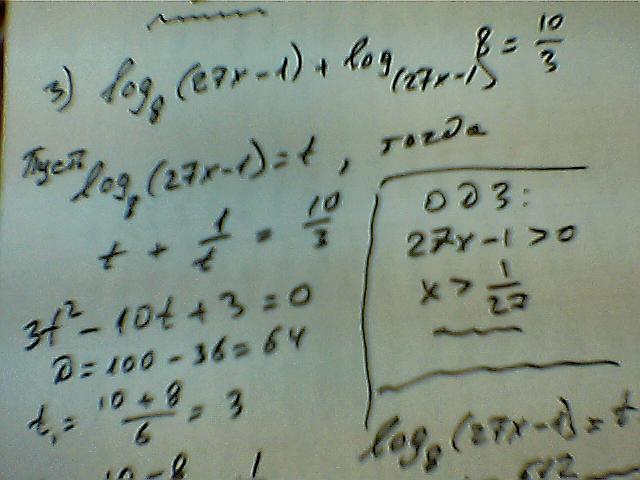 3) log₈(27x-1) + log₍₂₇ₓ₋₁₎8 = 10/3
Пусть log₈(27x-1) = t, тогда
t + 1/t = 10/3
3t² - 10t + 3 = 0
D = 100 - 36 = 64
t₁ = (10+8)/6 = 3
10-8 1
ОДЗ:
27x-1 > 0
x > 1/27
log₈(27x-1) = t